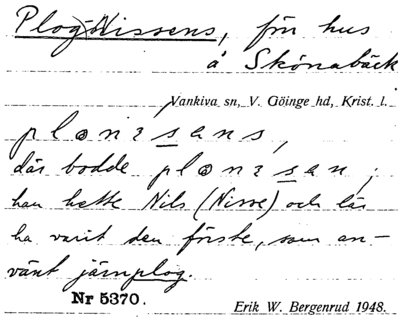 Plog-Nissens, fdn hus
å Skönabäck
Vankiva sn, V. Göinge hd, Krist. l.
där bodde
han hette Nils (Nisse) och lär
ha varit den förste, som an-
vänt järnplog.
Nr 5370.
Erik W. Bergenrud 1948.